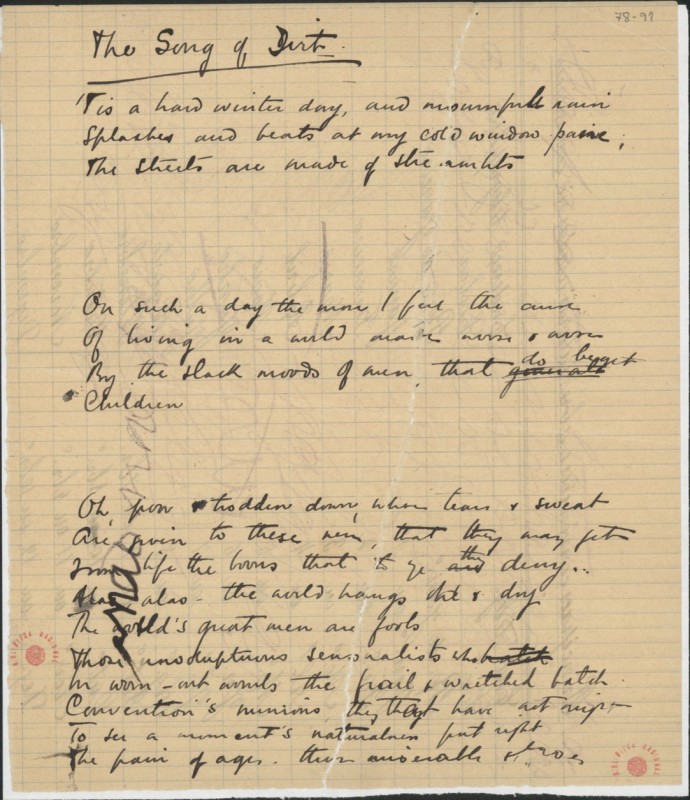 78-91
The Song of Dirt.
'Tis a hard winter day, and mournfull rain
Splashes and beats at my cold window pane;
The streets are made of
On such a day the more I feel the curse
Of living in a world made worse & worse
By the slack moods of men that generate do begget
Children
Oh, poor & trodden down, whose tears & sweat
Are given to these men, that they may get
From life the boons that to ye and they deny..
alas - the world hangs & dry
The world's great men are fools
Those sensualists who hatch
In worn-out wombs the frail & wretched batch.
Convention's minions, they that have not
To see a moment's naturalness put right
The pain of ages. these miserable